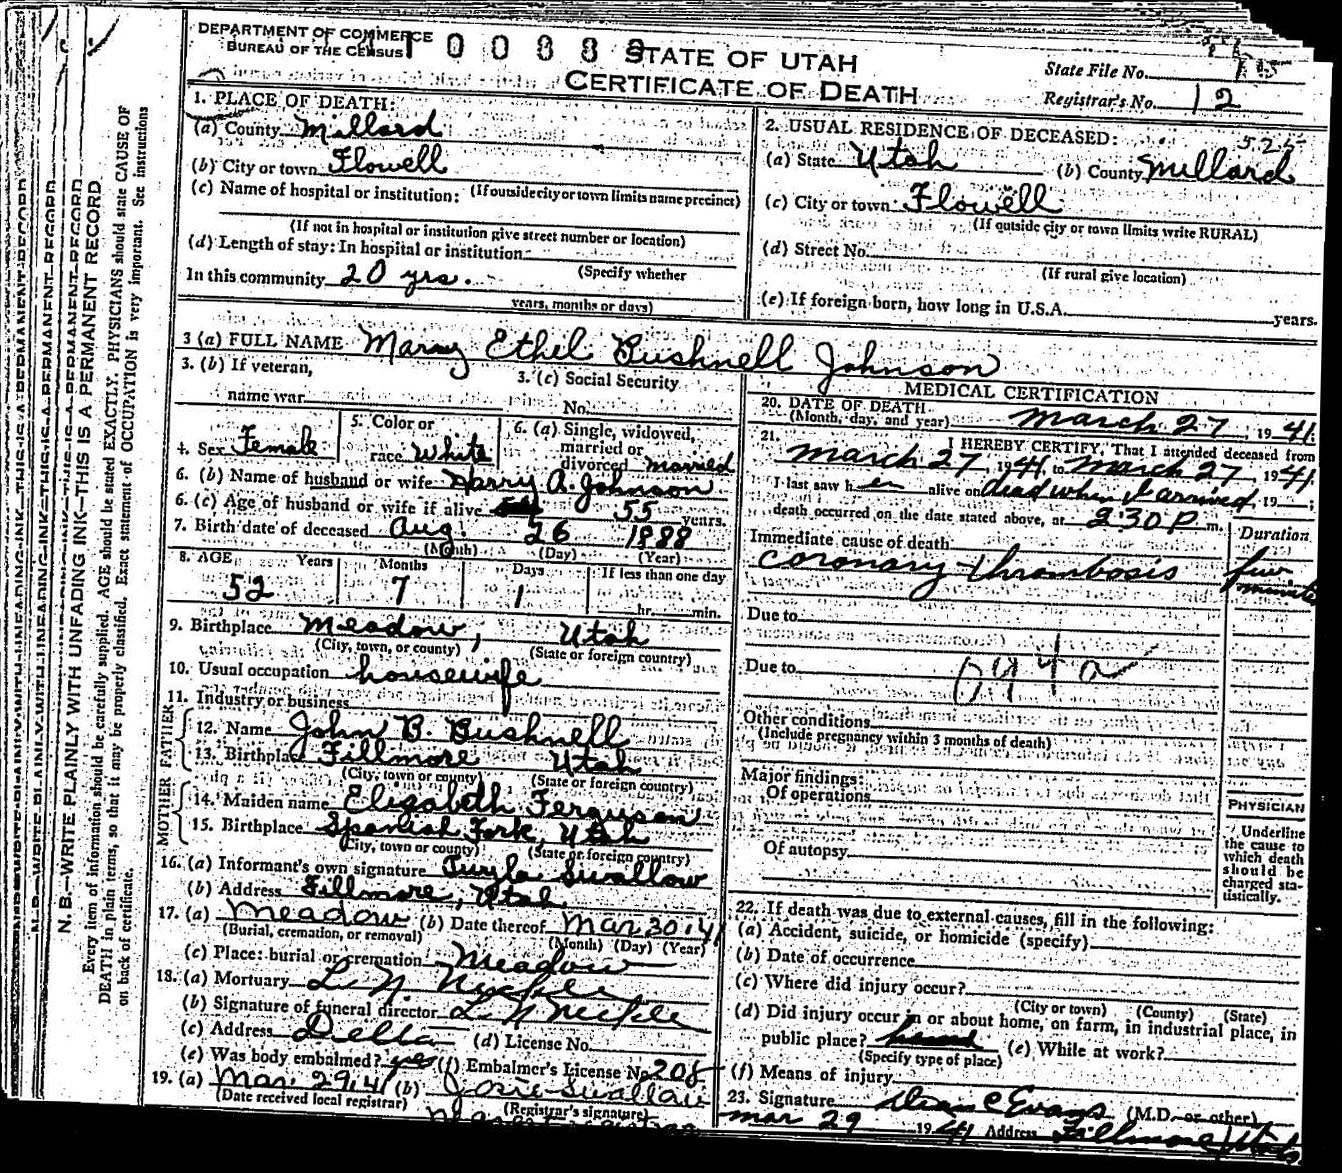 DEPARTMENT OF COMMERCE
BUREAU OF THE CENSUS
STATE OF UTAH
CERTIFICATE OF DEATH
State File No.
Registrar's No. 12
1. PLACE OF DEATH:
(a) County Millard
(b) City or town Flowell
(If outside city or town limits name precinct)
(c) Name of hospital or institution:
(If not in hospital or institution give street number or location)
(d) Length of stay: In hospital or institution
(Specify whether
In this community 20 yrs.
years, months or days)
2. USUAL RESIDENCE OF DECEASED:
(a) State Utah (b) County Millard
(c) City or town Flowell
(If outside city or town limits write RURAL)
(d) Street No.
(If rural give location)
(e) If foreign born, how long in U.S.A. years.
3 (a) FULL NAME Mary Ethel Bushnell Johnson
3. (b) If veteran,
name war
3. (c) Social Security
No.
4. Sex Female
5. Color or
race White
6. (a) Single, widowed,
married or
divorced married
6. (b) Name of husband or wife Harry A. Johnson
6. (c) Age of husband or wife if alive 55 years.
7. Birth date of deceased Aug. 26 1888
(Month) (Day) (Year)
8. AGE Years Months Days If less than one day
52 7 1 hr. min.
9. Birthplace Meadow, Utah
(City, town, or county) (State or foreign country)
10. Usual occupation housewife
11. Industry or business
FATHER
12. Name John B. Bushnell
13. Birthplace Fillmore Utah
(City, town or county) (State or foreign country)
MOTHER
14. Maiden name Elizabeth Ferguson
15. Birthplace Spanish Fork, Utah
(City, town or county) (State or foreign country)
16. (a) Informant's own signature Swallow
(b) Address Fillmore, Utah
17. (a) Meadow (b) Date thereof Mar 30 41
(Burial, cremation, or removal) (Month) (Day) (Year)
(c) Place: burial or cremation Meadow
18. (a) Mortuary L. N. Nickle
(b) Signature of funeral director L N Nickle
(c) Address Delta (d) License No.
(e) Was body embalmed? yes (f) Embalmer's License No. 208
19. (a) Mar. 29 41 (b) Josie Swallow
(Date received local registrar) (Registrar's signature)
MEDICAL CERTIFICATION
20. DATE OF DEATH
(Month, day, and year) March 27, 1941
21. I HEREBY CERTIFY, That I attended deceased from
March 27, 1941 to March 27, 1941
I last saw her alive on dead when I arrived, 19 ;
death occurred on the date stated above, at 2:30 P m.
Duration
Immediate cause of death
coronary thrombosis few minutes
Due to
Due to 094a
Other conditions
(Include pregnancy within 3 months of death)
Major findings:
Of operations
Of autopsy
PHYSICIAN
Underline
the cause to
which death
should be
charged sta-
tistically.
22. If death was due to external causes, fill in the following:
(a) Accident, suicide, or homicide (specify)
(b) Date of occurrence
(c) Where did injury occur?
(City or town) (County) (State)
(d) Did injury occur in or about home, on farm, in industrial place, in
public place? (e) While at work?
(Specify type of place)
(f) Means of injury
23. Signature Dean C Evans (M.D. or other)
Mar 29 1941 Address Fillmore Utah
N. B.—WRITE PLAINLY WITH UNFADING INK—THIS IS A PERMANENT RECORD
Every item of information should be carefully supplied. AGE should be stated EXACTLY. PHYSICIANS should state CAUSE OF
DEATH in plain terms, so that it may be properly classified. Exact statement of OCCUPATION is very important. See instructions
on back of certificate.